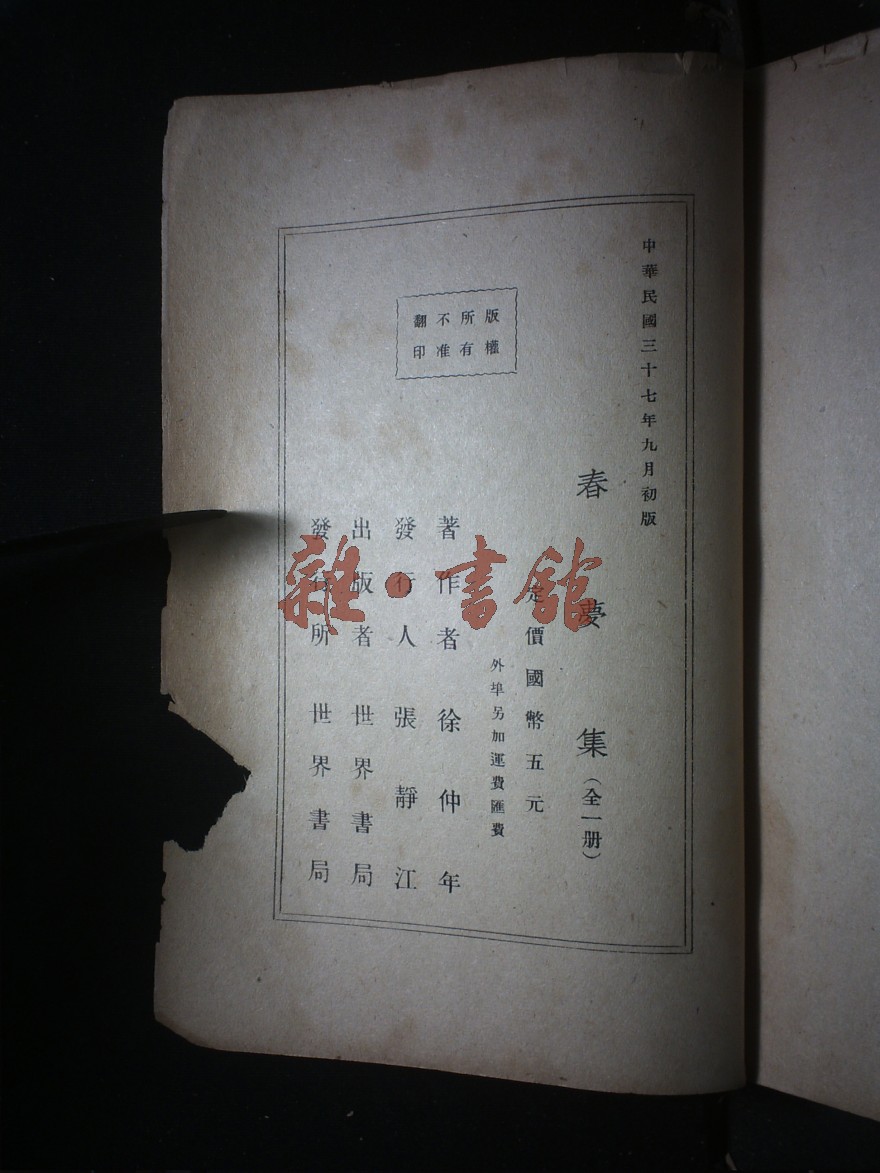 中華民國三十七年九月初版
春夢集（全一册）
定價國幣五元
外埠另加運費匯費
著作者 徐仲年
發行人 張靜江
出版者 世界書局
發行所 世界書局
版權
所有
不准
翻印
雜·書館